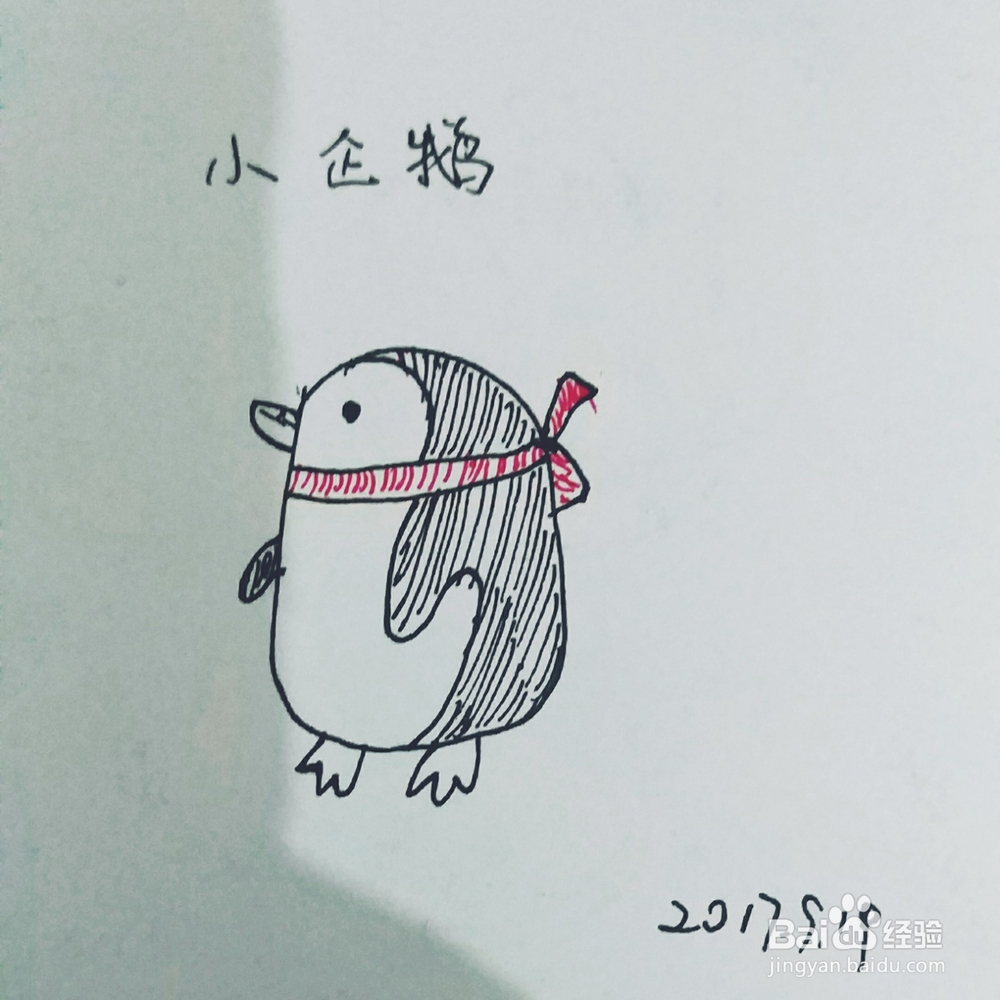 小企鹅
2017
Bai 经验
jingyan.baidu.com